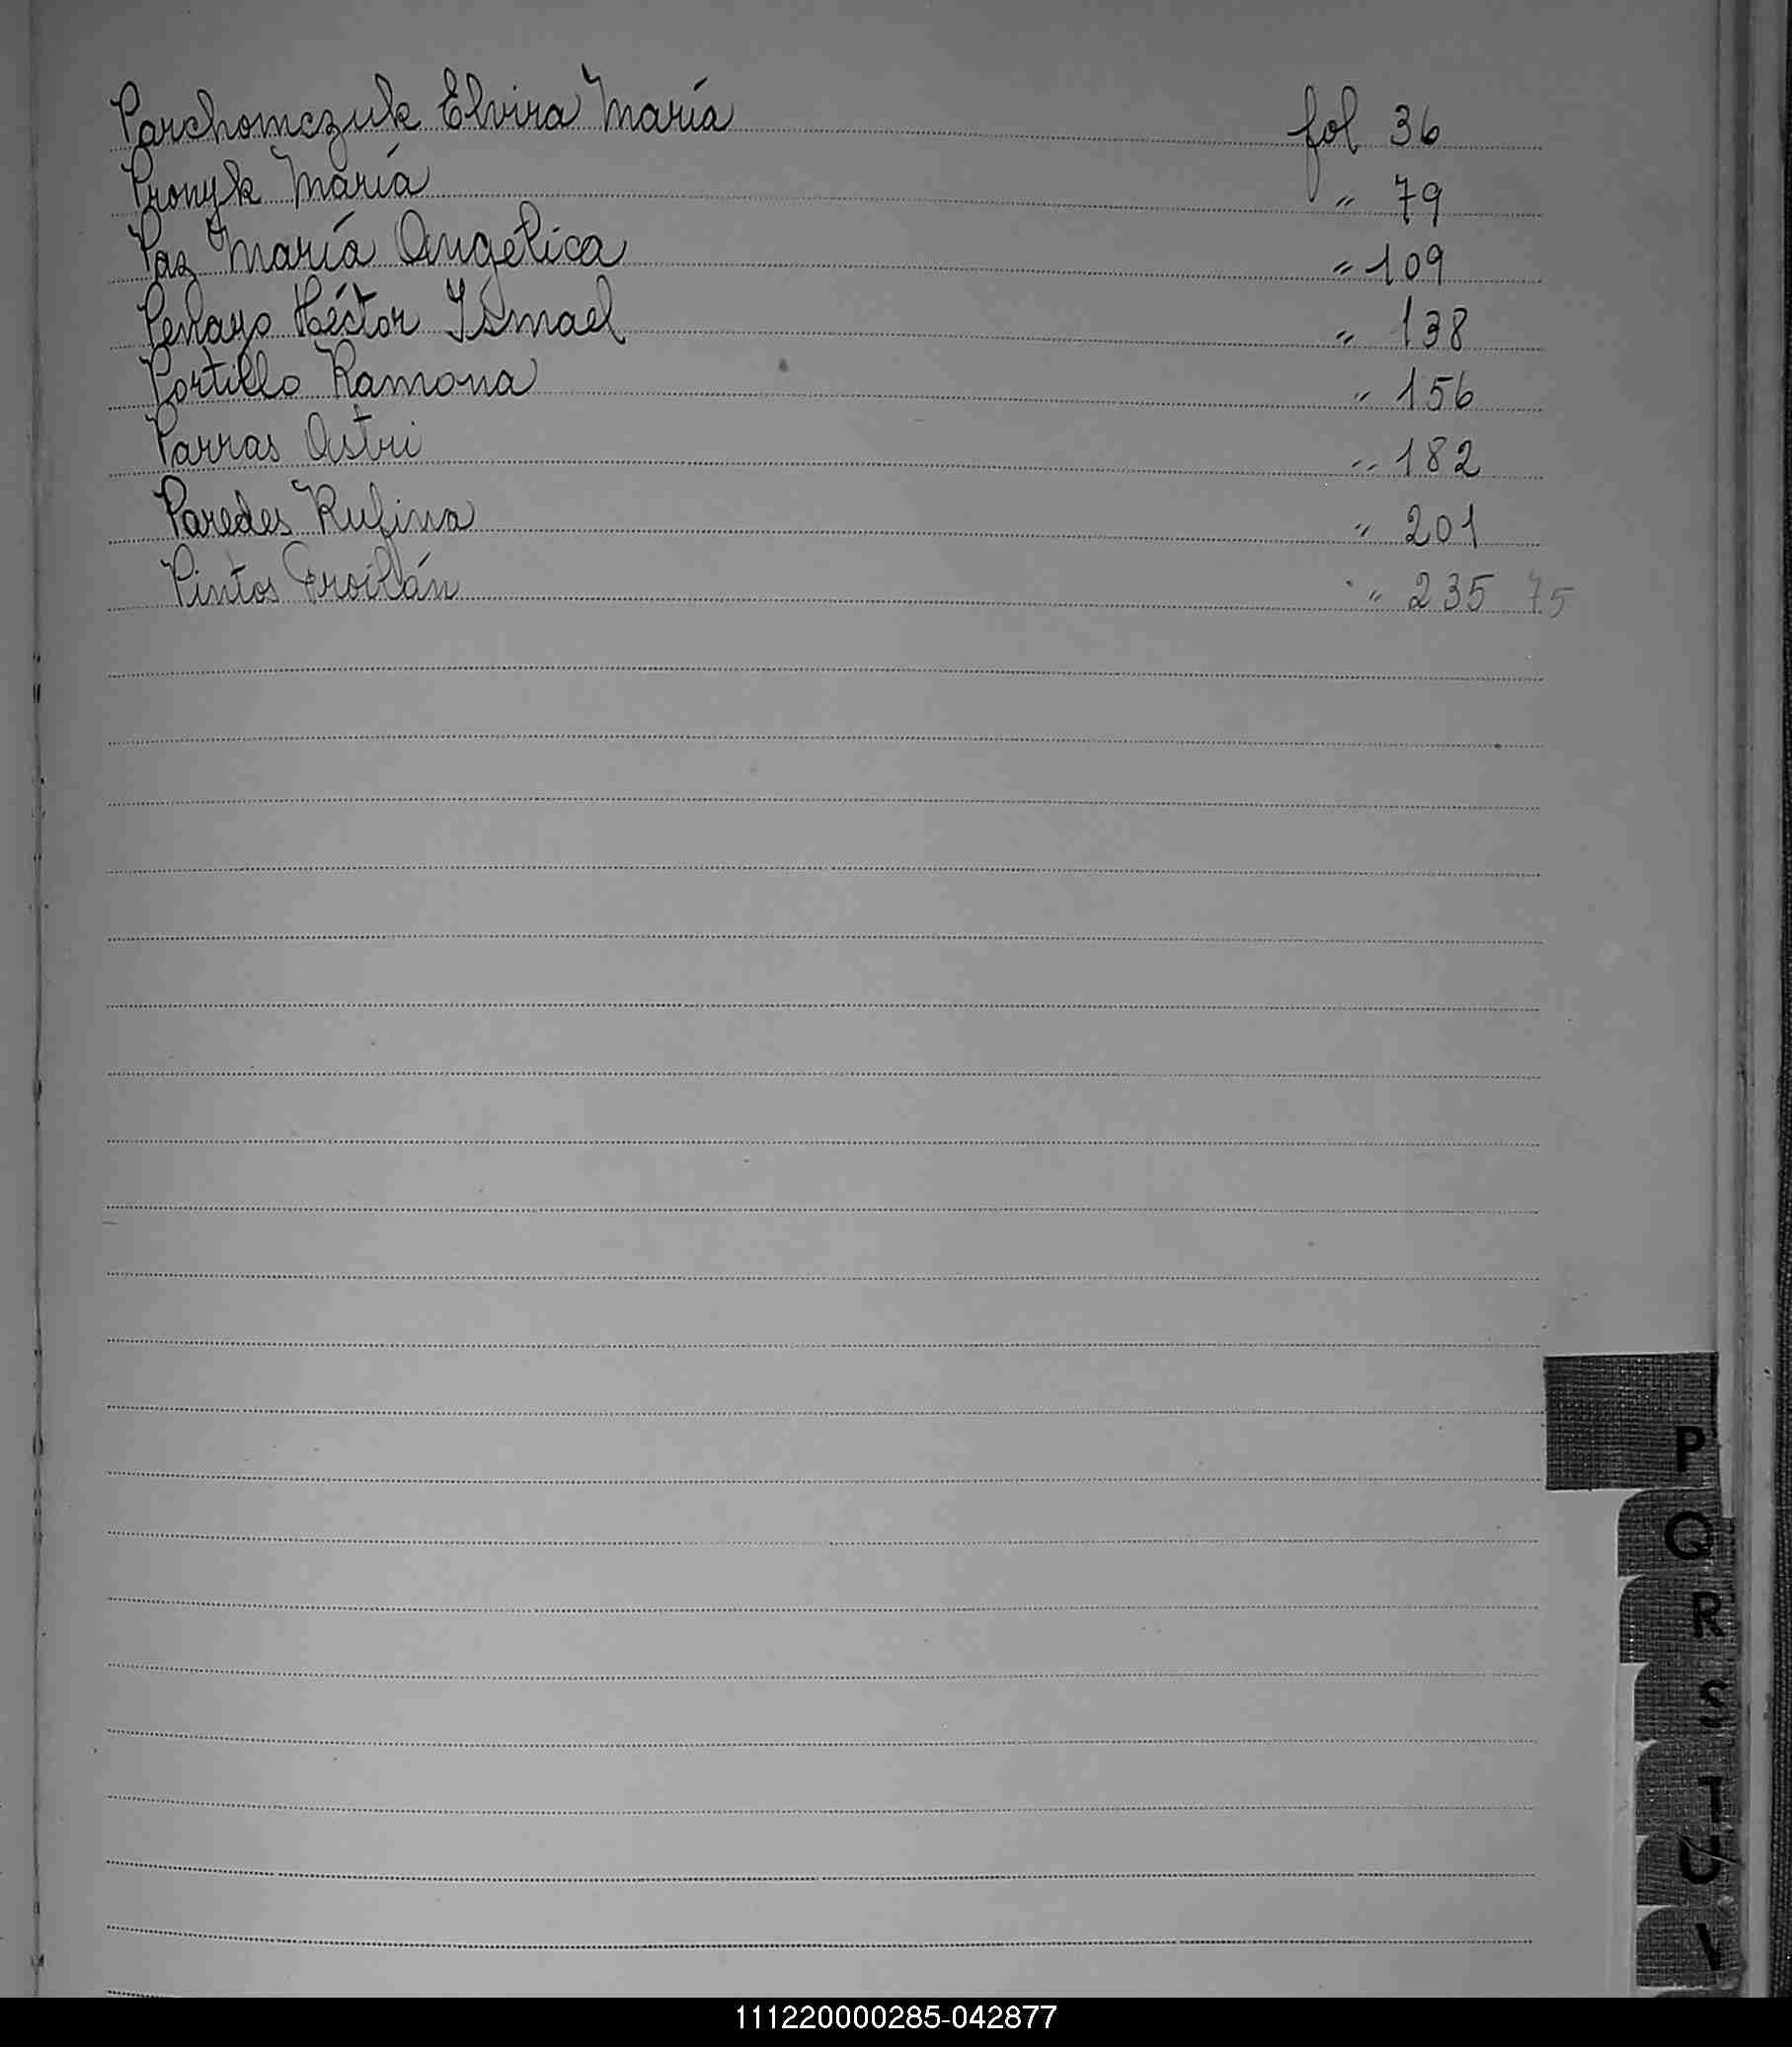 Parchomczuk Elvira María fol 36
Pronyk María " 79
Paz María Angélica " 109
Penayo Héctor Ismael " 138
Portillo Ramona " 156
Parras Astri " 182
Paredes Rufina " 201
Pintos Froilán " 235 75
P
Q
R
S
T
U
111220000285-042877